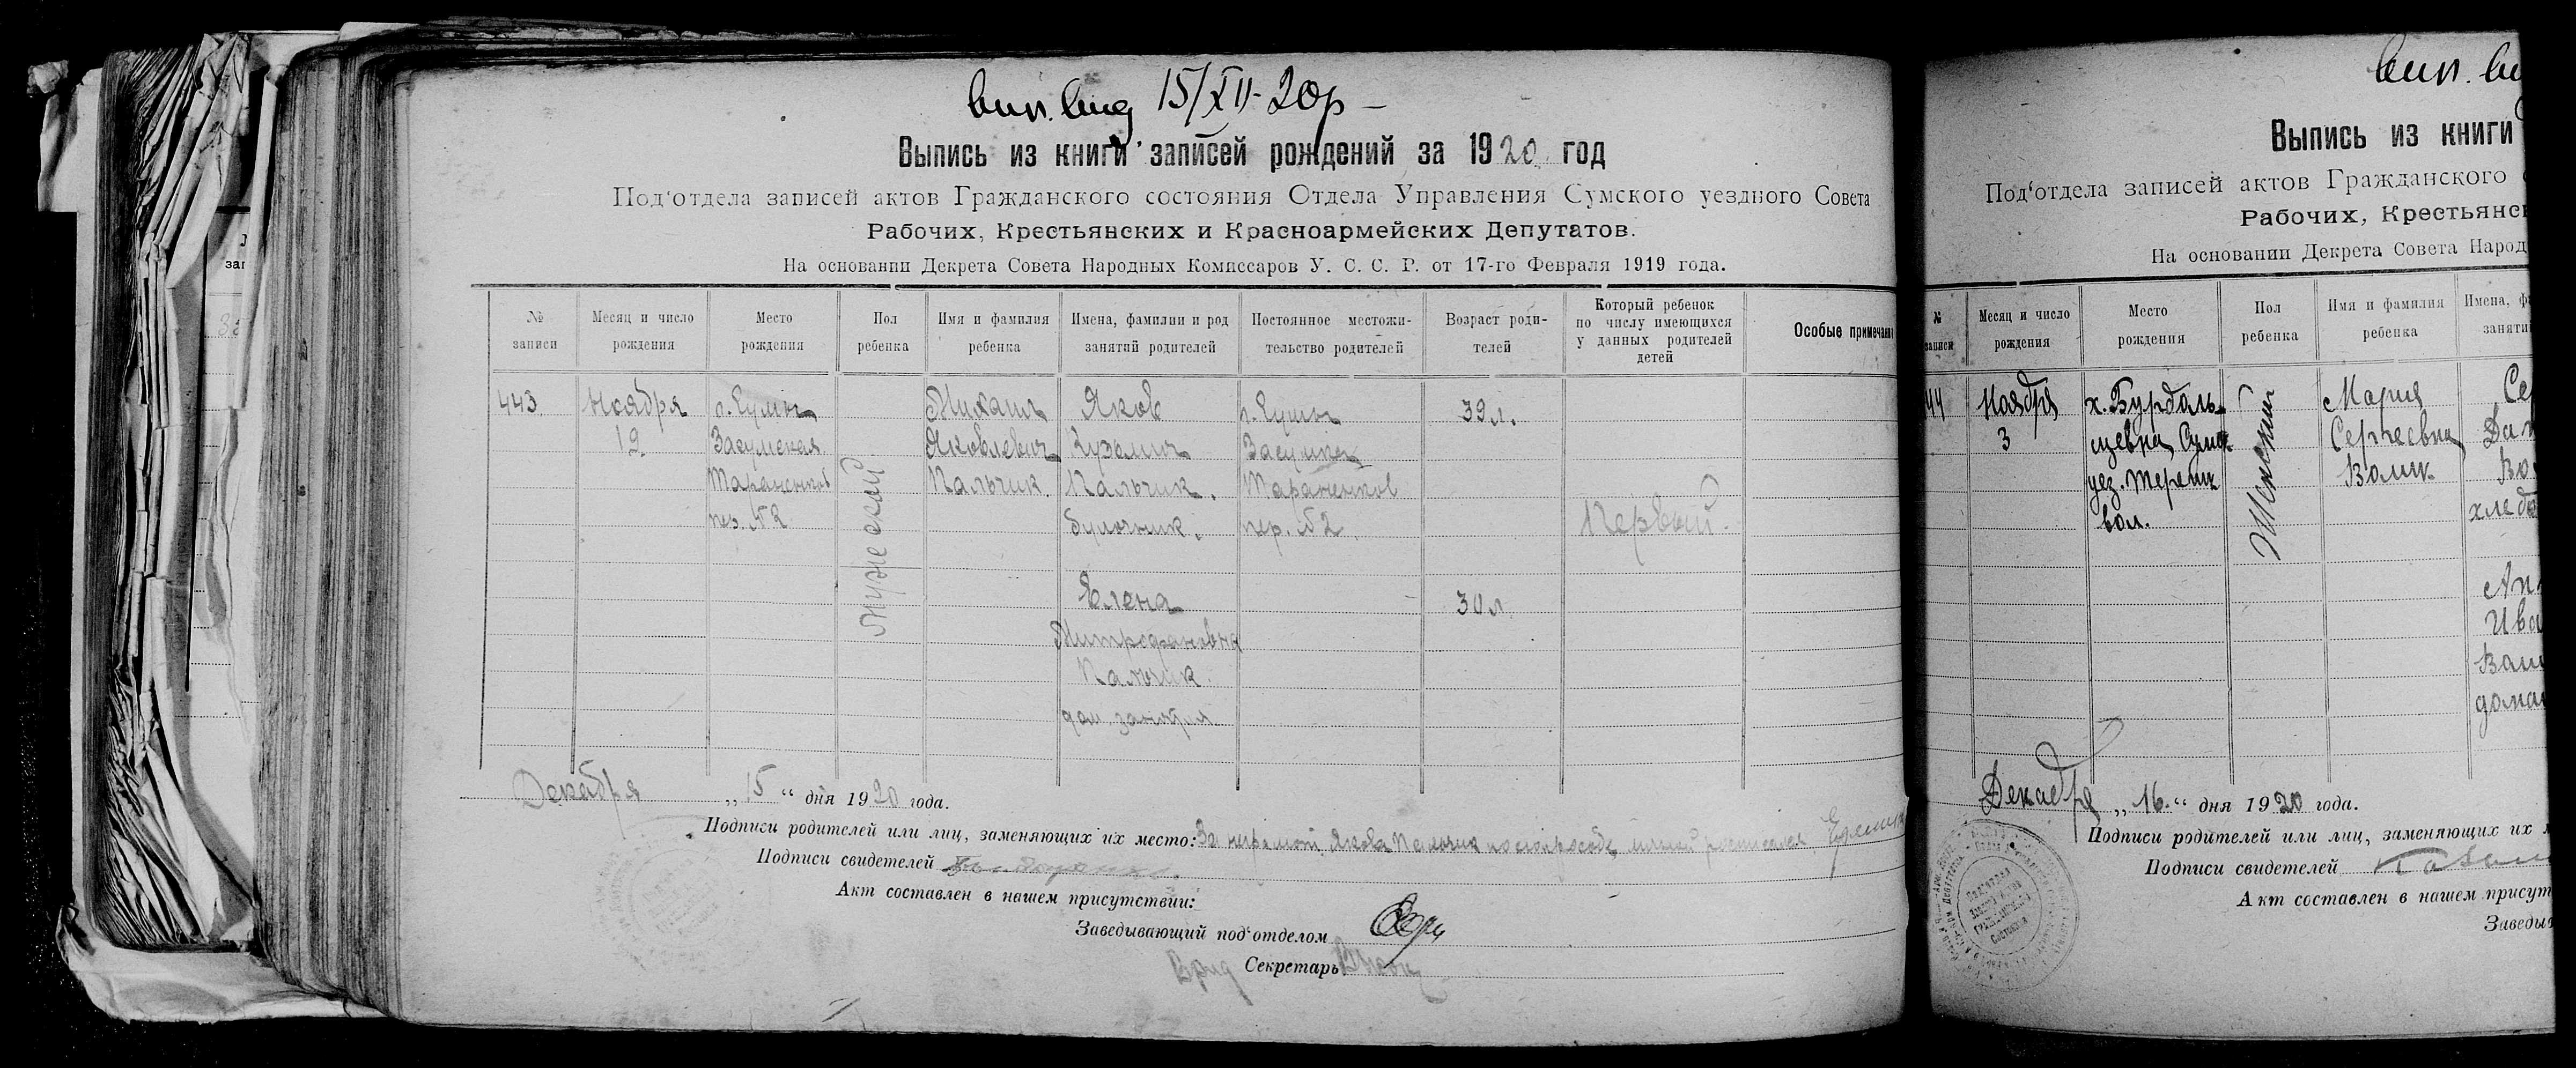 вип. вид 15/XII-20р
Выпись из книги записей рождений за 1920 год
Под'отдела записей актов Гражданского состояния Отдела Управления Сумского уездного Совета
Рабочих, Крестьянских и Красноармейских Депутатов.
На основании Декрета Совета Народных Комиссаров У. С. С. Р. от 17-го Февраля 1919 года.
№ записи
Месяц и число рождения
Место рождения
Пол ребенка
Имя и фамилия ребенка
Имена, фамилии и род занятий родителей
Постоянное местожительство родителей
Возраст родителей
Который ребенок по числу имеющихся у данных родителей детей
Особые примечания
443
Ноября
19
г. Сумы
Засумская
Тараненков
пер. №2
Мужеский
Михаил
Яковлевич
Пальчик
Яков
Кузьмич
Пальчик.
булочник.
г. Сумы
Засумская
Тараненков
пер. №2.
39 л.
Первый.
Елена
Митрофановна
Пальчик.
дом. занятия
30 л
Декабря „15“ дня 1920 года.
Подписи родителей или лиц, заменяющих их место: За неграмот. Якова Пальчик по его просьбе
Подписи свидетелей
Акт составлен в нашем присутствии:
Заведывающий под'отделом
Врид Секретарь
вип. ви
Выпись из книги
Под'отдела записей актов Гражданского с
Рабочих, Крестьянск
На основании Декрета Совета Народ
№ записи
Месяц и число рождения
Место рождения
Пол ребенка
Имя и фамилия ребенка
Имена, ф
заняти
44
Ноября
3
х. Бурдаль-
цевка, Сумск
уез. Терешк
вол.
Женский
Мария
Сергеевна
Волик
Се
Дан
Во
хлебо
Ан
Ива
Вол
домаш
Декабря „16.“ дня 1920 года.
Подписи родителей или лиц, заменяющих их м
Подписи свидетелей
Акт составлен в нашем присут
Заведыв